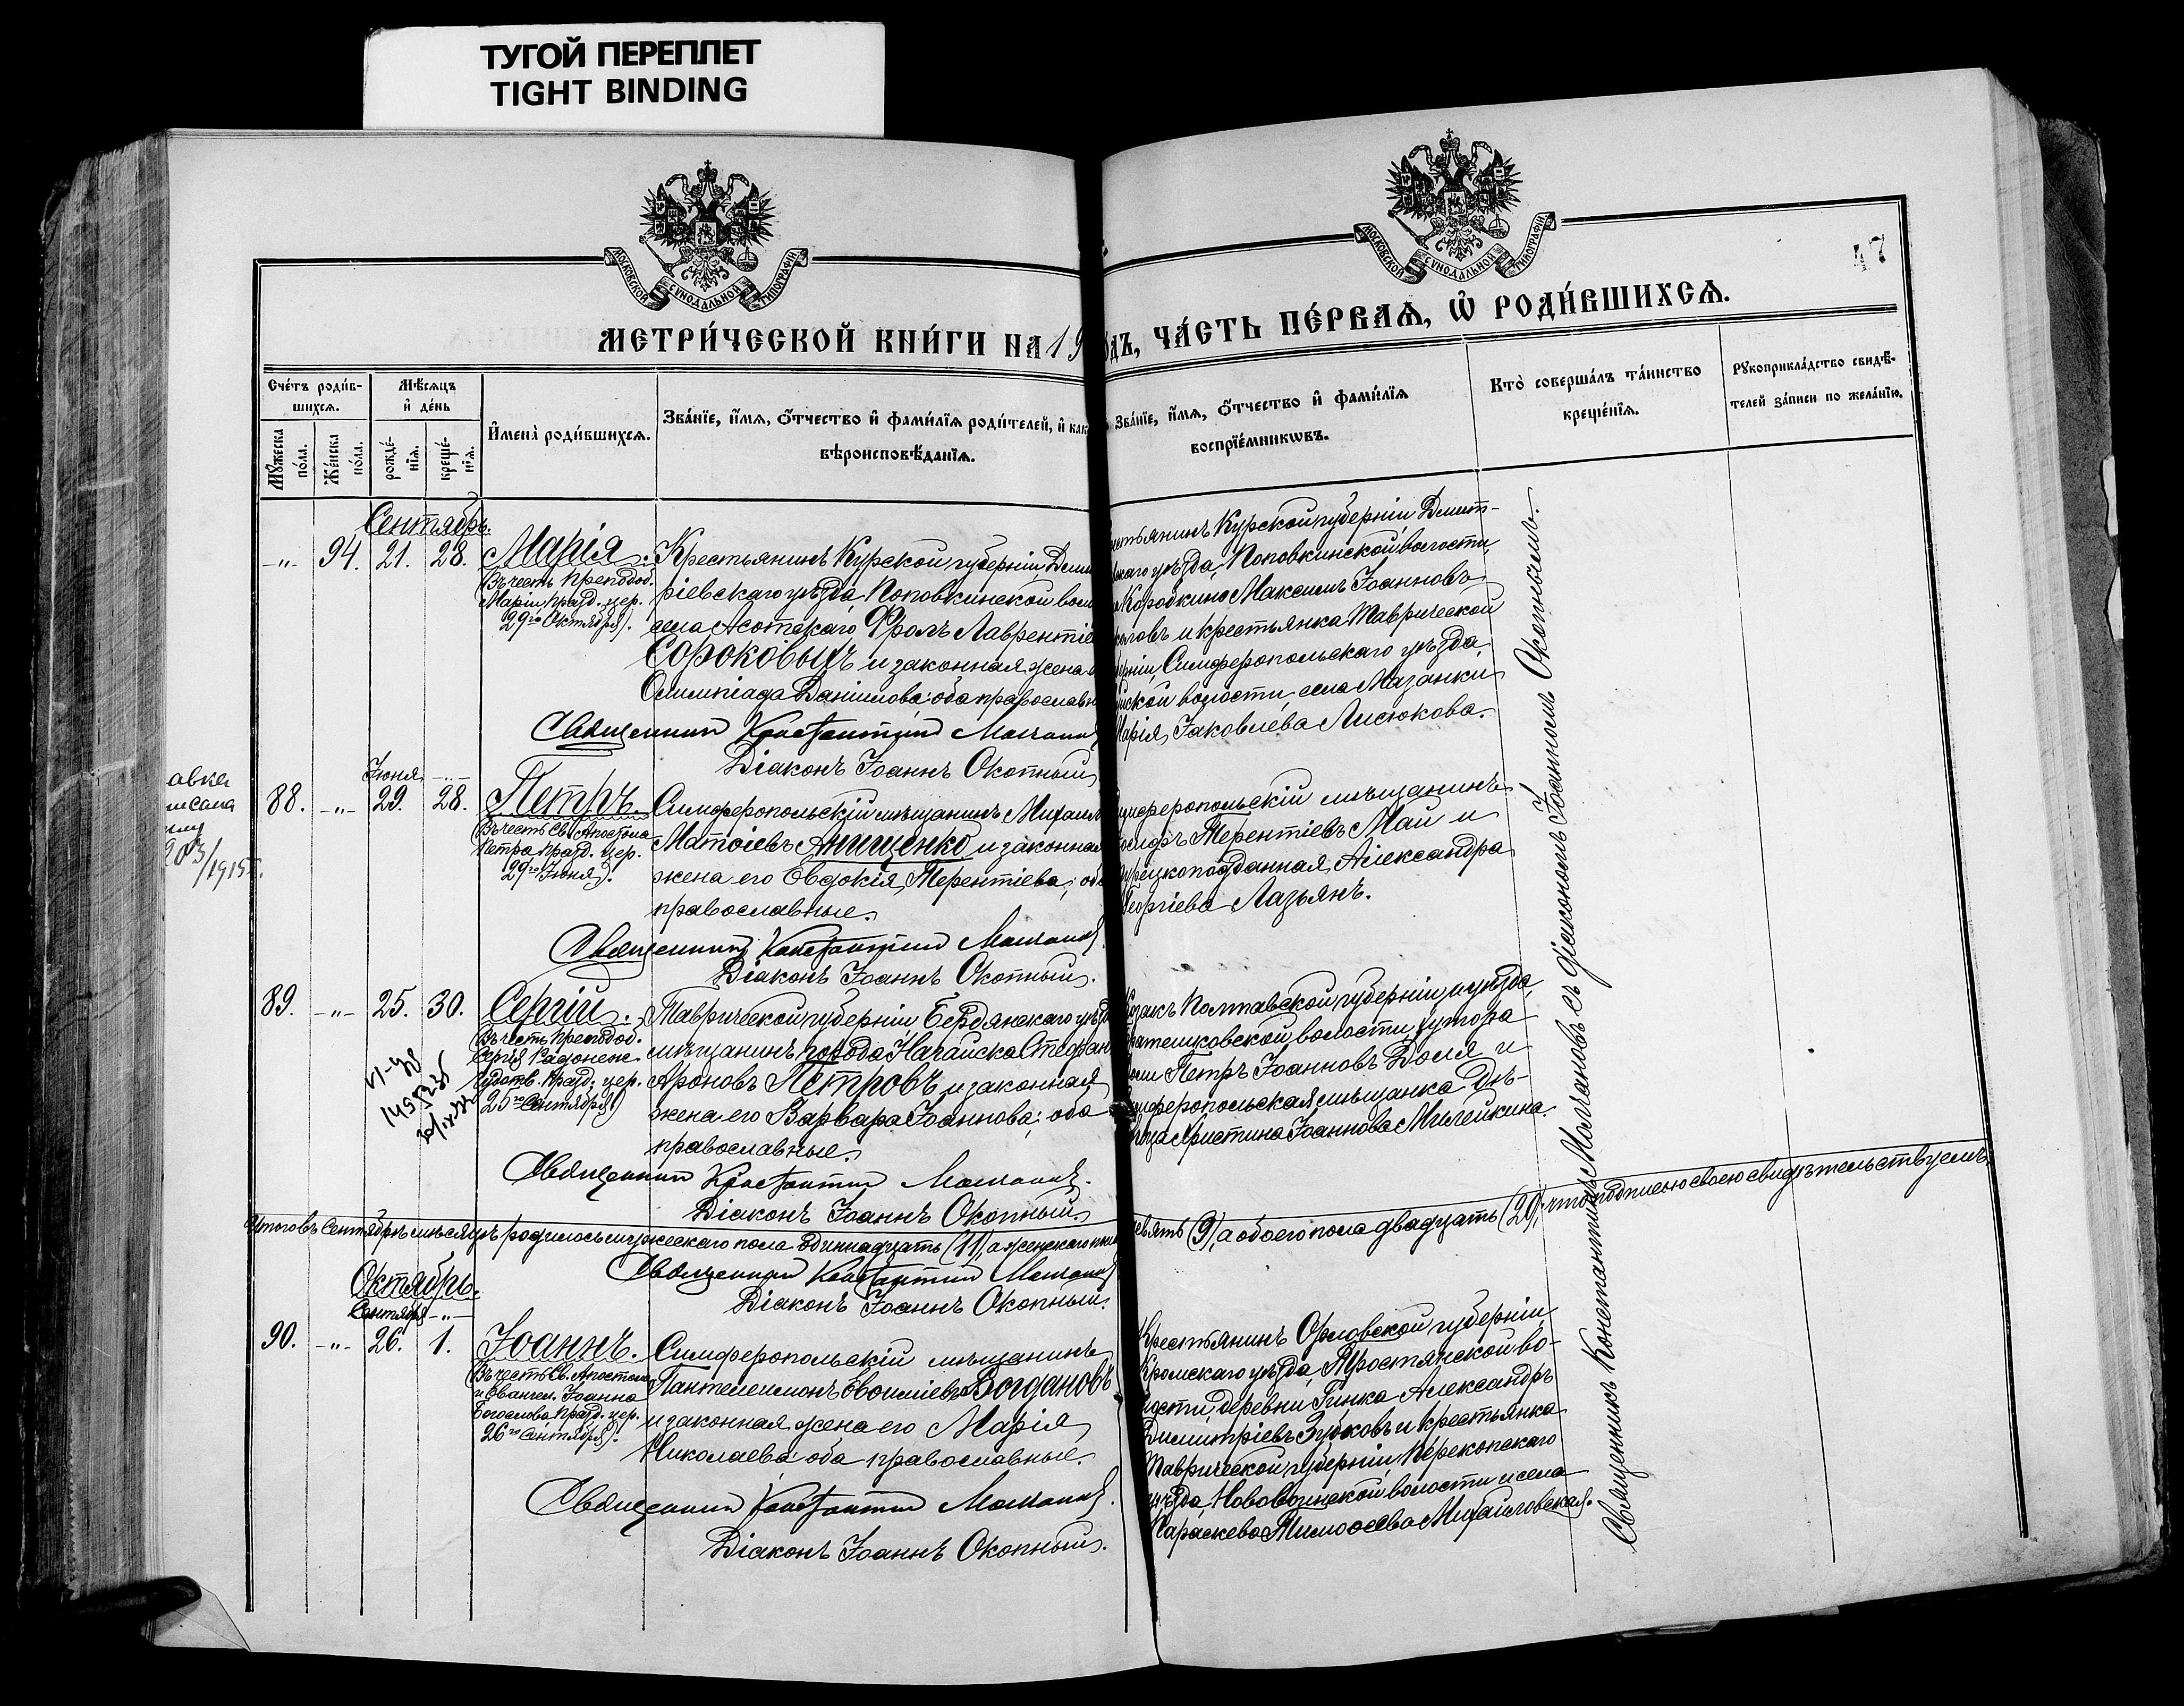 ТУГОЙ ПЕРЕПЛЕТ
TIGHT BINDING
МОСКОВСКОЙ СѴНОДАЛЬНОЙ ТИПОГРАФІИ
МОСКОВСКОЙ СѴНОДАЛЬНОЙ ТИПОГРАФІИ
47
МЕТРИ́ЧЕСКОЙ КНИ́ГИ НА 19
ОДЪ, ЧА́СТЬ ПЕ́РВАѦ, Ѡ РОДИ́ВШИХСѦ.
Сче́тъ роди́в-
шихсѧ.
Мꙋжеска
по́ла.
Же́нска
по́ла.
Мѣ́сѧцъ
и́ де́нь
рожде́-
нїѧ.
креще́-
нїѧ.
И҆мена̀ роди́вшихсѧ.
Зва́нїе, и́мѧ, ѻ҆́тчество и҆ фами́лїѧ роди́телей, и҆ как
вѣроисповѣ́данїѧ.
Зва́нїе, и́мѧ, ѻ҆́тчество и҆ фами́лїѧ
воспрїе́мникѡвъ.
Кто̀ соверша́лъ та́инство
креще́нїѧ.
Рꙋкоприкла́дство свидѣ́-
телей за́писи по жела́нїю.
Сентябрь.
-"- 94. 21. 28. Марія.
Въ честь преподоб.
Маріи празд. цер.
29го Октября).
Крестьянинъ Курской губерніи, Дми
ріевскаго уѣзда, Поповкинской воло
села Асотскаго, Фролъ Лаврентіе
Сороковыхъ и законная жена е
Олимпіада Даніилова; оба православн
Священникъ Константинъ Молчановъ
Діаконъ Іоаннъ Окопный
естьянинъ Курской губерніи Дмит-
скаго уѣзда, Поповкинской волости,
Коробкино Максимъ Іоанновъ
коловъ и крестьянка Таврической
ерніи, Симферопольскаго уѣзда,
йской волости, села Мазанки
Марія Іаковлева Лисюкова.
авка
исана
203/1915 г.
Іюня -"-
88. -"- 29. 28. Петръ.
Въ честь Св. Апостола
Петра празд. цер.
29го Іюня).
Симферопольскій мѣщанинъ Михаилъ
Матѳіевъ Анищенко и законная
жена его Евдокія Терентіева; оба
православные.
Священникъ Константинъ Молчановъ
Діаконъ Іоаннъ Окопный.
имферопольскій мѣщанинъ
осифъ Терентіевъ Май и
турецкоподданная, Александра
Георгіева Лазьянъ.
89. -"- 25. 30. Сергій.
Въ честь преподоб.
Сергія Радонеж.
Чудотв. празд. цер.
25го Сентября)
Таврической губерніи, Бердянскаго уѣзда
мѣщанинъ города Ногайска Стефанъ
Ароновъ Петровъ и законная
жена его Варвара Іоаннова; оба
православные.
Священникъ Константинъ Молчановъ.
Діаконъ Іоаннъ Окопный.
Козакъ Полтавской губерніи и уѣзда,
волости, хутора
Петръ Іоанновъ Доля и
имферопольская мѣщанка дѣ-
вица Христина Іоаннова Милейкина.
Итого въ Сентябрѣ мѣсяцѣ родилось мужескаго пола одиннадцать (11), а женскаго пола
евять (9), а обоего пола двадцать (20), что подписью своею свидѣтельствуемъ.
Священникъ Константинъ Молчановъ
Діаконъ Іоаннъ Окопный.
Октябрь.
Сентября -"-
90. -"- 26. 1. Іоаннъ.
Въ честь Св. Апостола
и Евангел. Іоанна
Богослова празд. цер.
26го Сентября).
Симферопольскій мѣщанинъ
Пантелеимонъ Евѳиміевъ Богдановъ
и законная жена его Марія
Николаева: оба православные.
Священникъ Константинъ Молчановъ.
Діаконъ Іоаннъ Окопный.
Крестьянинъ Орловской губерніи,
Кромскаго уѣзда, Тростянской во-
лости, деревни Гинка Александръ
Димитріевъ Зубковъ и крестьянка
Таврической губерніи, Перекопскаго
уѣзда, волости и села
Параскева Тимоѳеева Михайловская.
Священникъ Константинъ Молчановъ съ діакономъ Іоанномъ Окопнымъ.